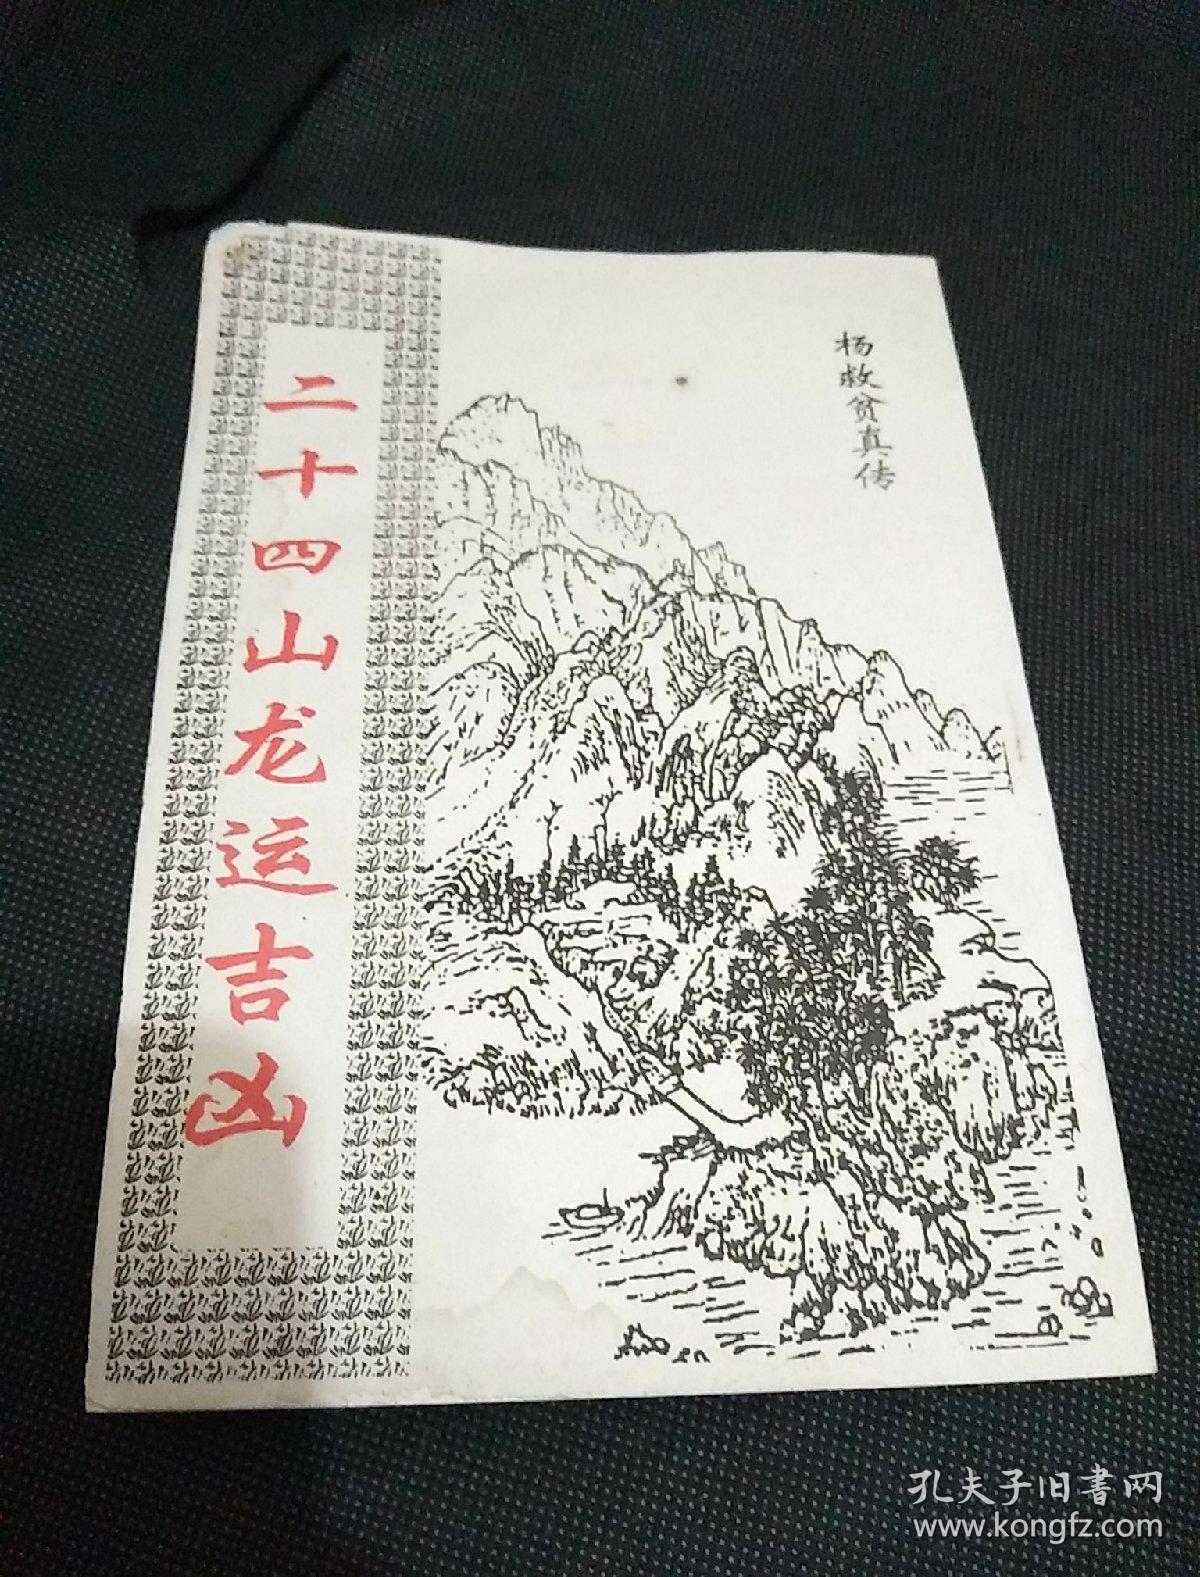 杨救贫真传
二十四山龙运吉凶
孔夫子旧書网
www.kongfz.com